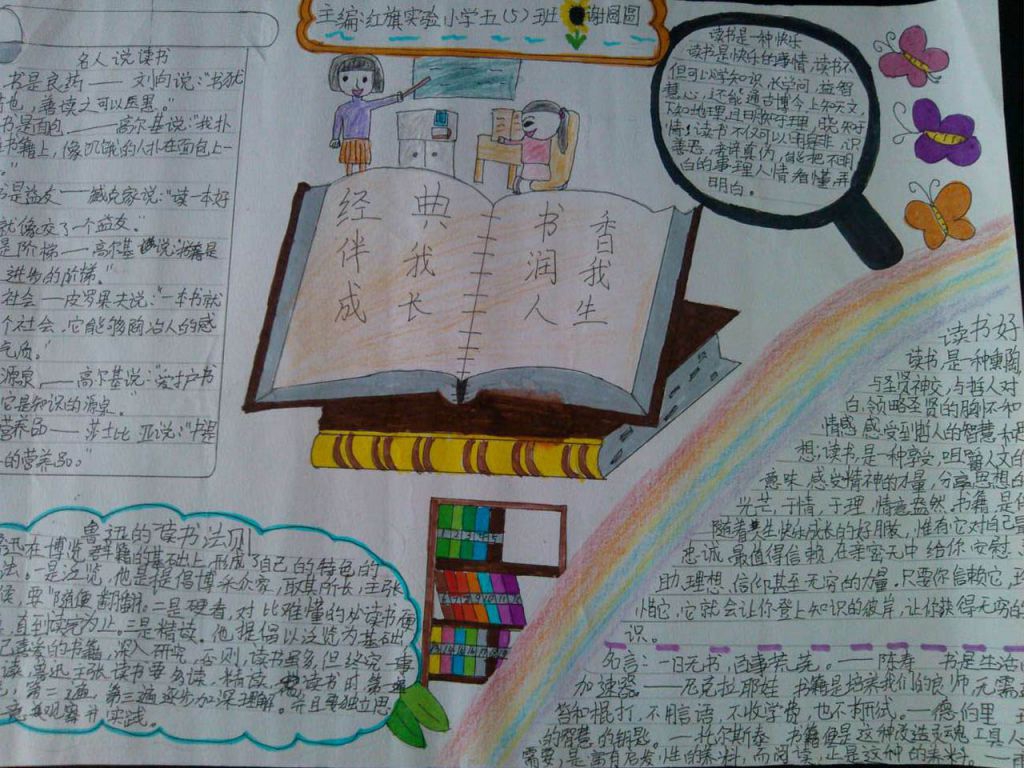 主编:红旗实验小学五(5)班 谢圆圆
名人说读书
书是良药——刘向说:“书犹
也,善读之可以医愚。”
书是面包——高尔基说:“我扑
书籍上,像饥饿的人扑在面包上一
是益友——臧克家说:“读一本好
就像交了一个益友。
是阶梯——高尔基说:书籍是
进步的阶梯。”
社会——皮罗果夫说:“一本书就
个社会,它能够陶冶人的感
气质。”
源泉——高尔基说:“爱护书
它是知识的源泉。”
营养品——莎士比亚说:“书是
的营养品。”
经典
伴我
成长
书香
润我
人生
读书是一种快乐
读书是快乐的事情,读书不
但可以学知识,长学问,益智
慧心,还能通古博今,上知天文,
下知地理,且明察于理,
情!读书不仅可以明是非,识
善恶,考评真伪,能把不明
白的事理人情看懂弄
明白。
读书好
读书,是一种熏陶
与圣贤神交,与哲人对
白,领略圣贤的胸怀和
情感,感受到哲人的智慧
想;读书,是一种享受,咀嚼人文的
意味,感受精神的力量,分享思想的
光芒,于情,于理,情意盎然,书籍,是
随着生快乐成长的好朋友,惟有它对自己
忠诚,最值得信赖,在亲密无中给你安慰、
助,理想,信仰甚至无穷的力量,只要你信赖它,
它,它就会让你登上知识的彼岸,让你获得无穷的
识。
鲁迅的读书法则
鲁迅在博览群籍的基础上,形成了自己的特色的
法。一是泛览,他是提倡博采众家,取其所长,主张
后,要“随便翻翻。二是硬看,对比难懂的必读书
直到读完为止。三是精读。他提倡以泛览为基础
己喜爱的书籍,深入研究,否则,读书虽多,但终究一事
读,鲁迅主张读书要多读、精读,读书时第一
第二遍、第三遍逐步加深理解。并且要独立思
观察并实践。
名言:一日无书,百事荒芜。——陈寿 书是生活
加速器——尼克拉耶娃 书籍是培养我们的良师,无需
笞和棍打,不用言语,不收学费,也不拘形式。—德伯里
的智慧的钥匙。——托尔斯泰 书籍便是这种改造灵魂工具
需要,是富有启发性的养料,而阅读,正是这种的养料。